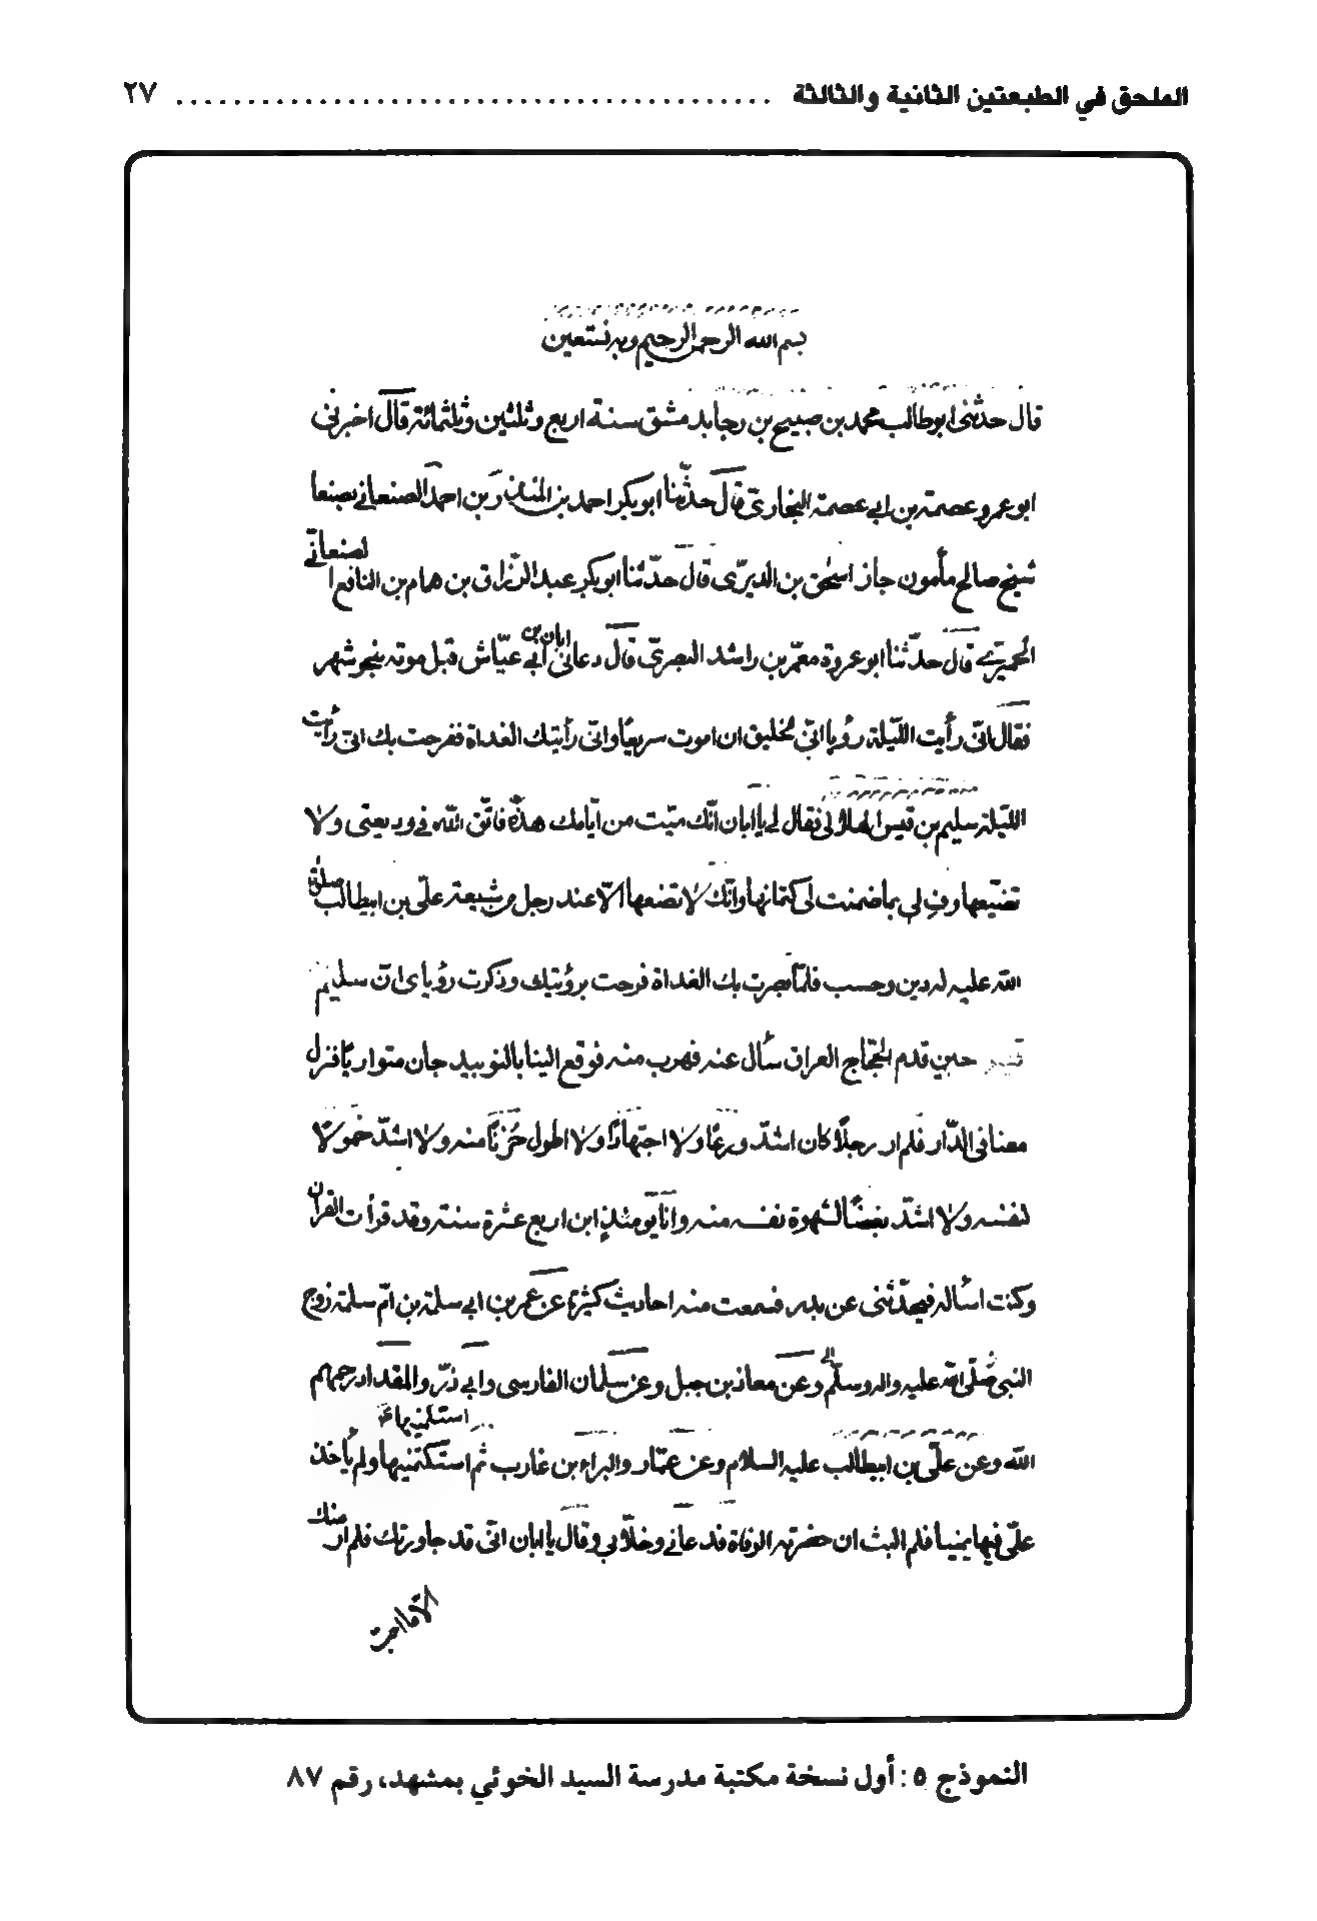 الملحق في الطبعتين الثانية والثالثة ........................................ ٢٧
بسم الله الرحمن الرحيم وبه نستعين
قال حدثنى ابوطالب محمد بن صبيح بن رجا بدمشق سنة اربع وثلثين وثلثمائة قال اخبرنى
ابو عمرو عصمة بن ابي عصمة البخارىّ قال حدثنا ابو بكر احمد بن المنذر بن احمد الصنعاني بصنعا
شيخ صالح مأمون جاز اسحٰق بن الديرّى قال حدّثنا ابو بكر عبد الرّزاق بن همام بن النافع الصنعانّي
الحميرّي قال حدّثنا ابو عروة معمّر بن راشد البصرىّ قال دعانى ابان بن أبي عيّاش قبل موته بنحو شهر
فقال انّى رأيت اللّيلة رؤيا انّي لخليق ان اموت سريعًا وانّى رأيتك الغداة ففرحت بك انى رأيت
اللّيلة سليم بن قيس الهلالى فقال لي يا ابان انّك ميّت من أيّامك هذه فاتّق الله في وديعتى ولا
تضيّعها وفِ لي بما ضمنت لى كتمانها وانّك لا تضعها الّا عند رجل من شيعة علىّ بن ابيطالب صلوة
الله عليه له دين وحسب فلمّا بصرت بك الغداة فرحت برؤيتك وذكرت رؤياى انّ سليم
قيس حين قدم الحجّاج العراق سأل عنه فهرب منه فوقع الينا بالنوبيدجان متواريًا فنزل
معنا فى الدّار فلم ار رجلًا كان اشدّ ورعًا ولا اجتهادًا ولا اطول حُزنًا منه ولا اشدّ خمولًا
لنفسه ولا اشدّ بغضًا لشهوة نفسه منه وانا يومئذٍ ابن اربع عشرة سنة وقد قرأت القرآن
وكنت اسأله فيحدّثنى عن بدر فسمعت منه احاديث كثيرة عن عمر بن ابي سلمة بن امّ سلمة زوج
النبي صلّى الله عليه واله وسلّم وعن معاذ بن جبل وعن سلمان الفارسى وابي ذرّ والمقداد رحمهم
الله وعن علىّ بن ابيطالب عليه السلام وعن عمّار والبراء بن غارب ثم استكتمنيها ولم يأخذ
علىّ فيها يمينا فلم البث ان حضرته الوفاة فدعاني وخلّا بي وقال يا ابان انّى قد جاورتك فلم ار منك
الّا ما احبّ
النموذج ٥: أول نسخة مكتبة مدرسة السيد الخوئي بمشهد، رقم ٨٧